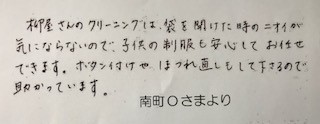 柳屋さんのクリーニングは、袋を開けた時のニオイが
気にならないので、子供の制服も安心してお任せ
できます。ボタン付けや ほつれ直しもして下さるので
助かっています。
南町Oさまより